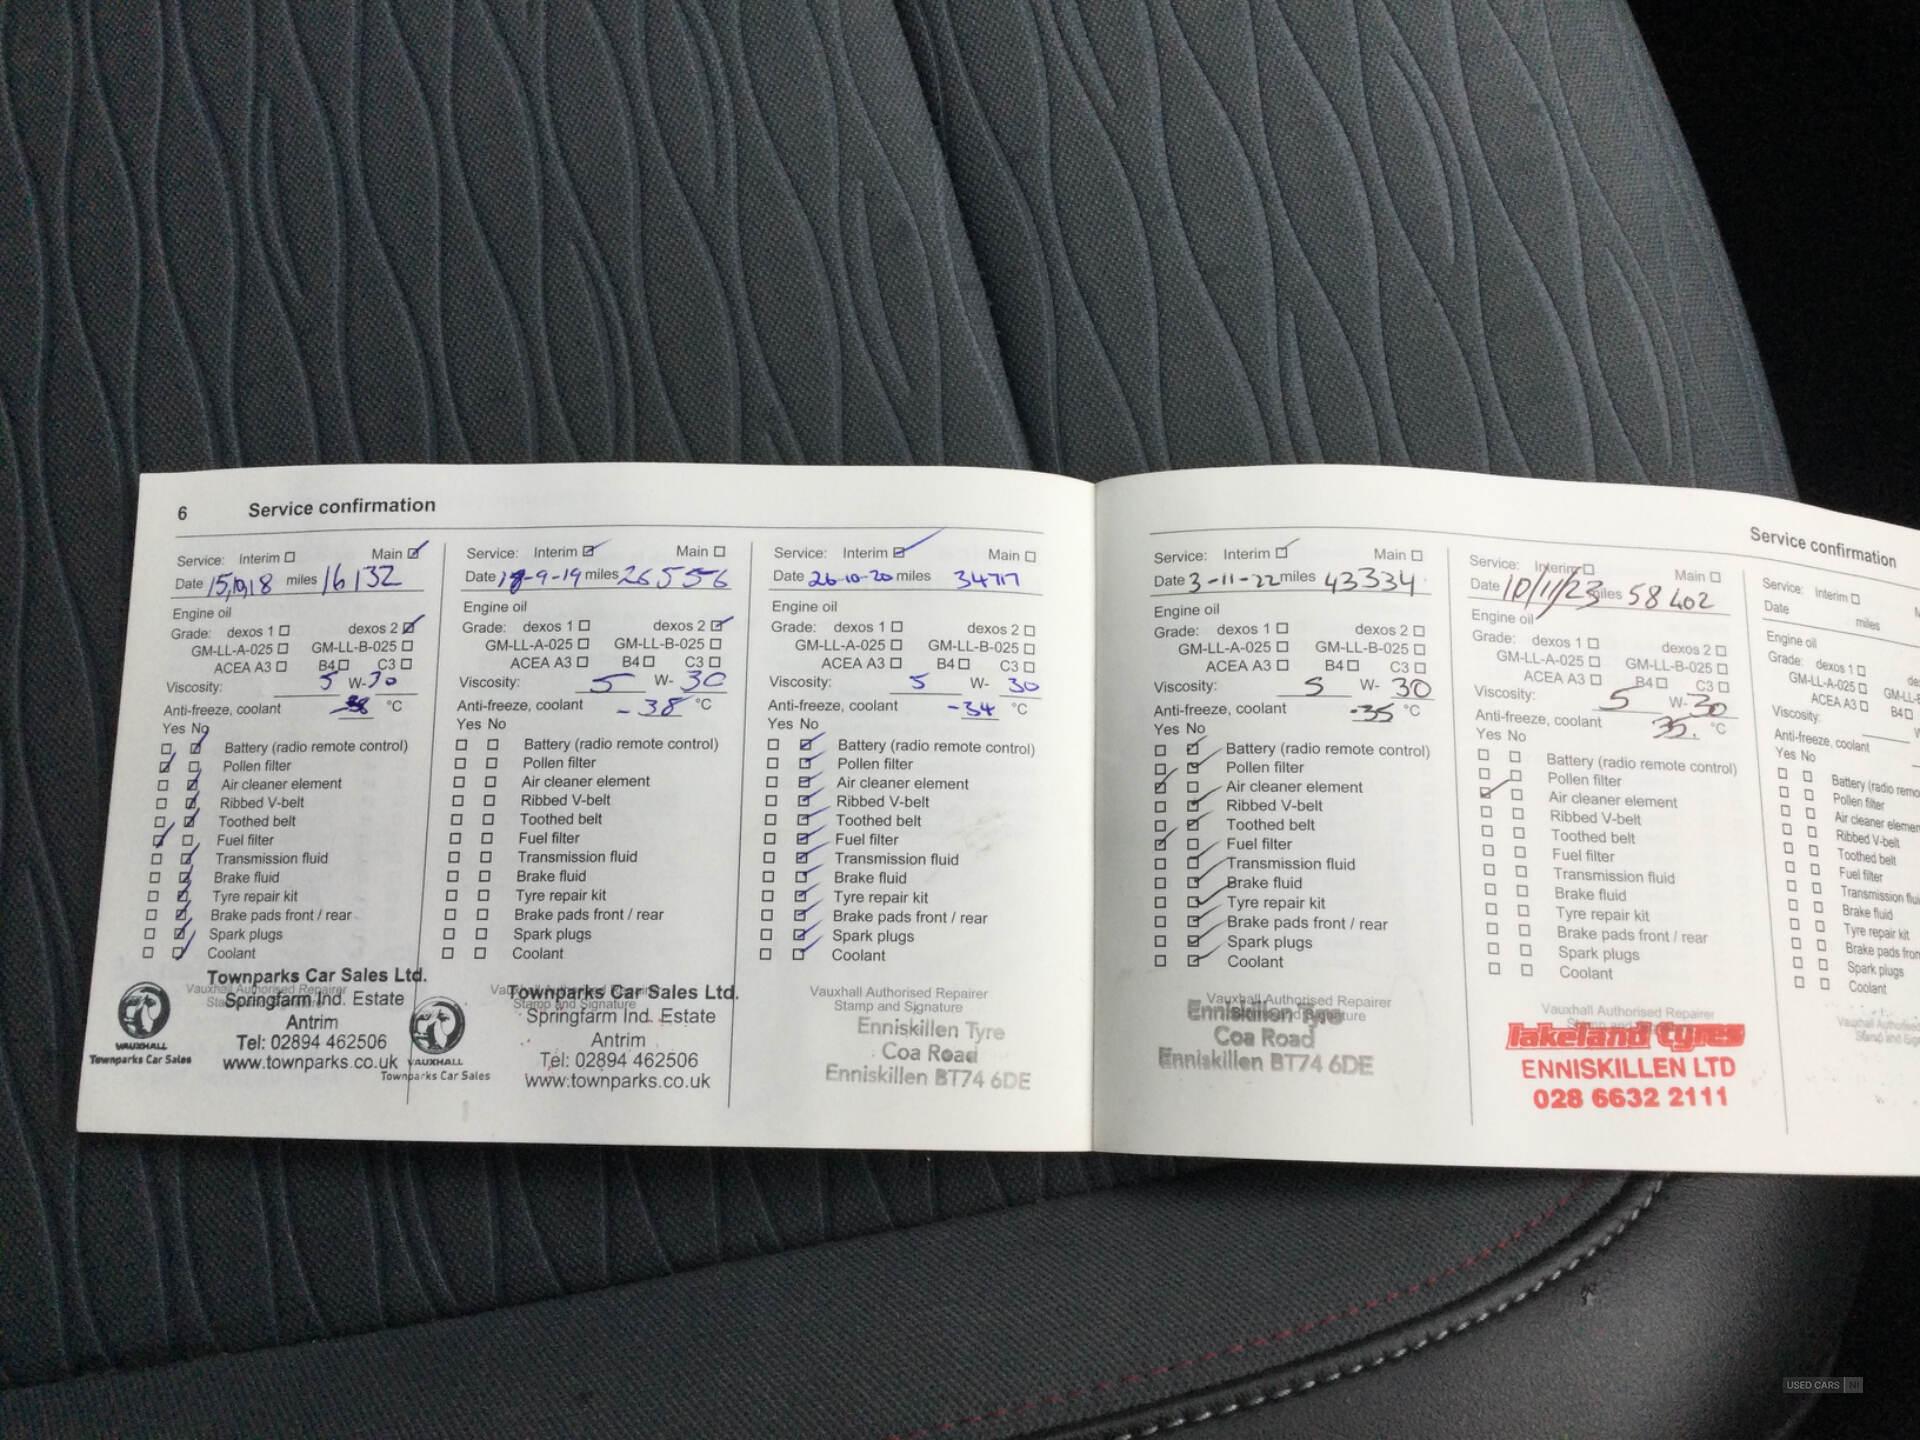 6 Service confirmation
Service: Interim Main
Date 15,10,18 miles 16132
Engine oil
Grade: dexos 1 dexos 2
GM-LL-A-025 GM-LL-B-025
ACEA A3 B4 C3
Viscosity: 5 W-30
Anti-freeze, coolant -38 °C
Yes No
Battery (radio remote control)
Pollen filter
Air cleaner element
Ribbed V-belt
Toothed belt
Fuel filter
Transmission fluid
Brake fluid
Tyre repair kit
Brake pads front / rear
Spark plugs
Coolant
Vauxhall Authorised Repairer
Townparks Car Sales Ltd.
Springfarm Ind. Estate
Antrim
Tel: 02894 462506
www.townparks.co.uk
VAUXHALL
Townparks Car Sales
Service: Interim Main
Date -9-19 miles 26556
Engine oil
Grade: dexos 1 dexos 2
GM-LL-A-025 GM-LL-B-025
ACEA A3 B4 C3
Viscosity: 5 W- 30
Anti-freeze, coolant -38 °C
Yes No
Battery (radio remote control)
Pollen filter
Air cleaner element
Ribbed V-belt
Toothed belt
Fuel filter
Transmission fluid
Brake fluid
Tyre repair kit
Brake pads front / rear
Spark plugs
Coolant
Townparks Car Sales Ltd.
Stamp and Signature
Springfarm Ind. Estate
Antrim
Tel: 02894 462506
www.townparks.co.uk
VAUXHALL
Townparks Car Sales
Service: Interim Main
Date 26-10-20 miles 34717
Engine oil
Grade: dexos 1 dexos 2
GM-LL-A-025 GM-LL-B-025
ACEA A3 B4 C3
Viscosity: 5 W- 30
Anti-freeze, coolant -34 °C
Yes No
Battery (radio remote control)
Pollen filter
Air cleaner element
Ribbed V-belt
Toothed belt
Fuel filter
Transmission fluid
Brake fluid
Tyre repair kit
Brake pads front / rear
Spark plugs
Coolant
Vauxhall Authorised Repairer
Stamp and Signature
Enniskillen Tyre
Coa Road
Enniskillen BT74 6DE
Service confirmation
Service: Interim Main
Date 3-11-22 miles 43334
Engine oil
Grade: dexos 1 dexos 2
GM-LL-A-025 GM-LL-B-025
ACEA A3 B4 C3
Viscosity: 5 W- 30
Anti-freeze, coolant -35 °C
Yes No
Battery (radio remote control)
Pollen filter
Air cleaner element
Ribbed V-belt
Toothed belt
Fuel filter
Transmission fluid
Brake fluid
Tyre repair kit
Brake pads front / rear
Spark plugs
Coolant
Vauxhall Authorised Repairer
Enniskillen Tyre
Coa Road
Enniskillen BT74 6DE
Service: Interim Main
Date 10/11/23 miles 58402
Engine oil
Grade: dexos 1 dexos 2
GM-LL-A-025 GM-LL-B-025
ACEA A3 B4 C3
Viscosity: 5 W-30
Anti-freeze, coolant 35. °C
Yes No
Battery (radio remote control)
Pollen filter
Air cleaner element
Ribbed V-belt
Toothed belt
Fuel filter
Transmission fluid
Brake fluid
Tyre repair kit
Brake pads front / rear
Spark plugs
Coolant
Vauxhall Authorised Repairer
lakeland tyres
ENNISKILLEN LTD
028 6632 2111
Service: Interim
Date miles
Engine oil
Grade: dexos 1
GM-LL-A-025 GM-LL-
ACEA A3 B4
Viscosity:
Anti-freeze, coolant
Yes No
Battery (radio remo
Pollen filter
Air cleaner element
Ribbed V-belt
Toothed belt
Fuel filter
Transmission flui
Brake fluid
Tyre repair kit
Brake pads fron
Spark plugs
Coolant
Vauxhall Authorised
Stamp and Sig
USED CARS NI